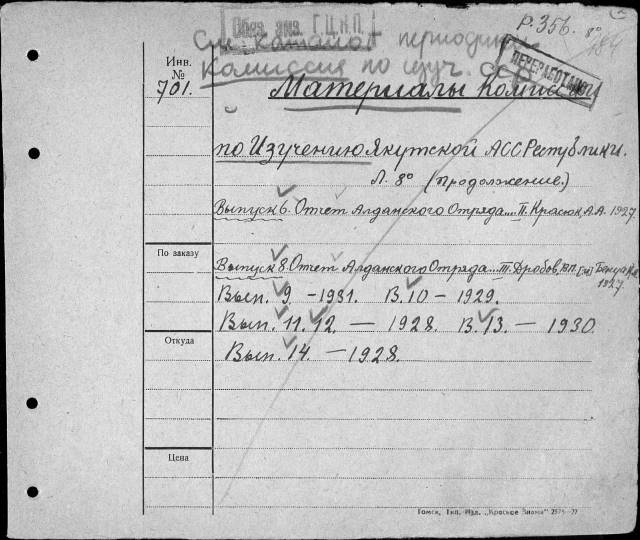 Обяз. экз. Г.Ц.К.П.
Р. 356. 8°
См. каталог периодики
Комиссия по изуч. ССР
ПЕРЕРАБОТАНО
Инв.
№
701.
Материалы Комиссии
по Изучению Якутской АССРеспублики.
Л. 8° (Продолжение.)
Выпуск 6. Отчет Алданского Отряда... П. Красюк А.А. 1927.
По заказу
Выпуск 8. Отчет Алданского Отряда... Т. Дробов, В.П.
1927.
Вып. 9. - 1931. В. 10 - 1929.
Вып. 11. 12. - 1928. В. 13. - 1930.
Откуда
Вып. 14. - 1928.
Цена
Томск, Тип. Изд. „Красное Знамя"